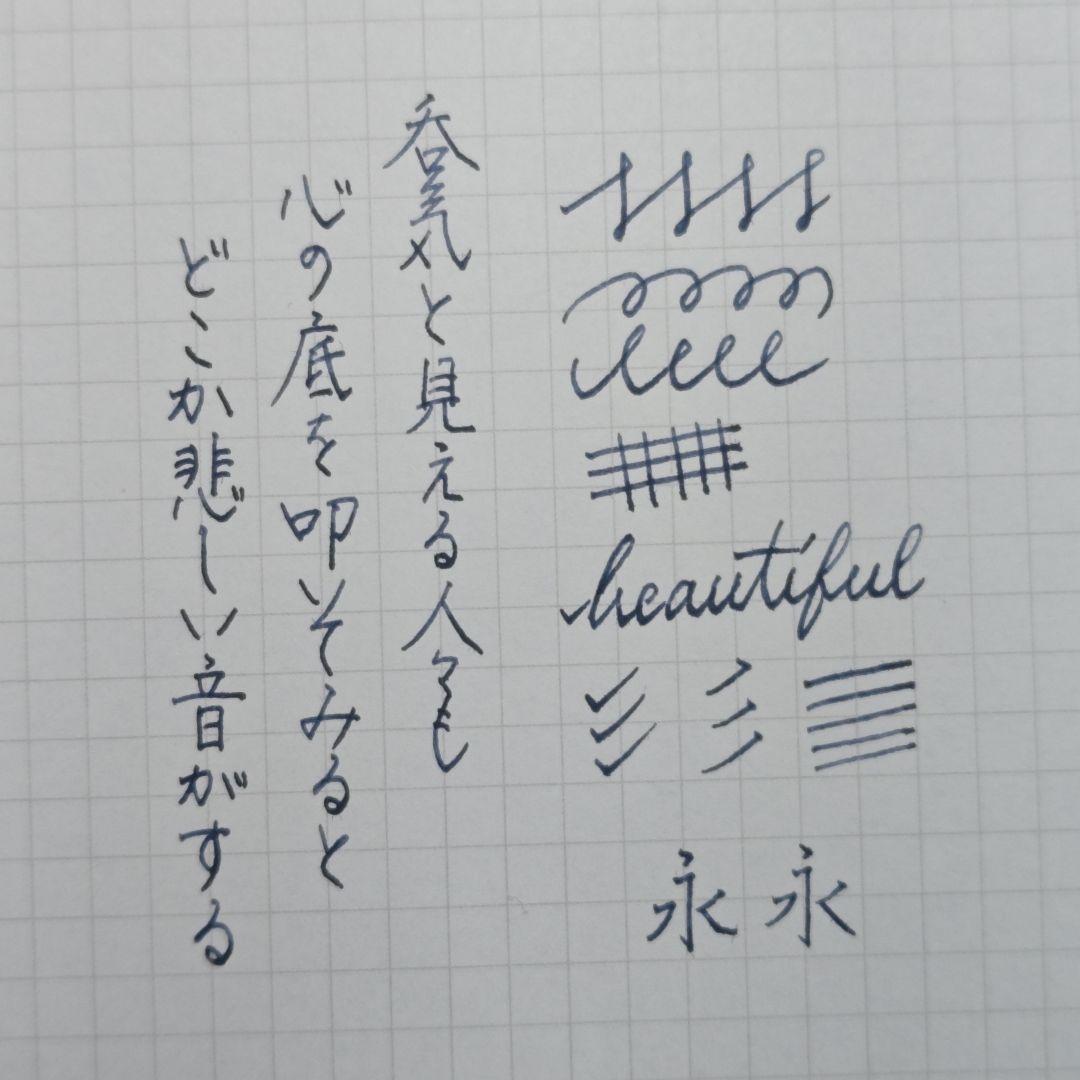 beautiful
永永
呑気と見える人々も
心の底を叩いてみると
どこか悲しい音がする